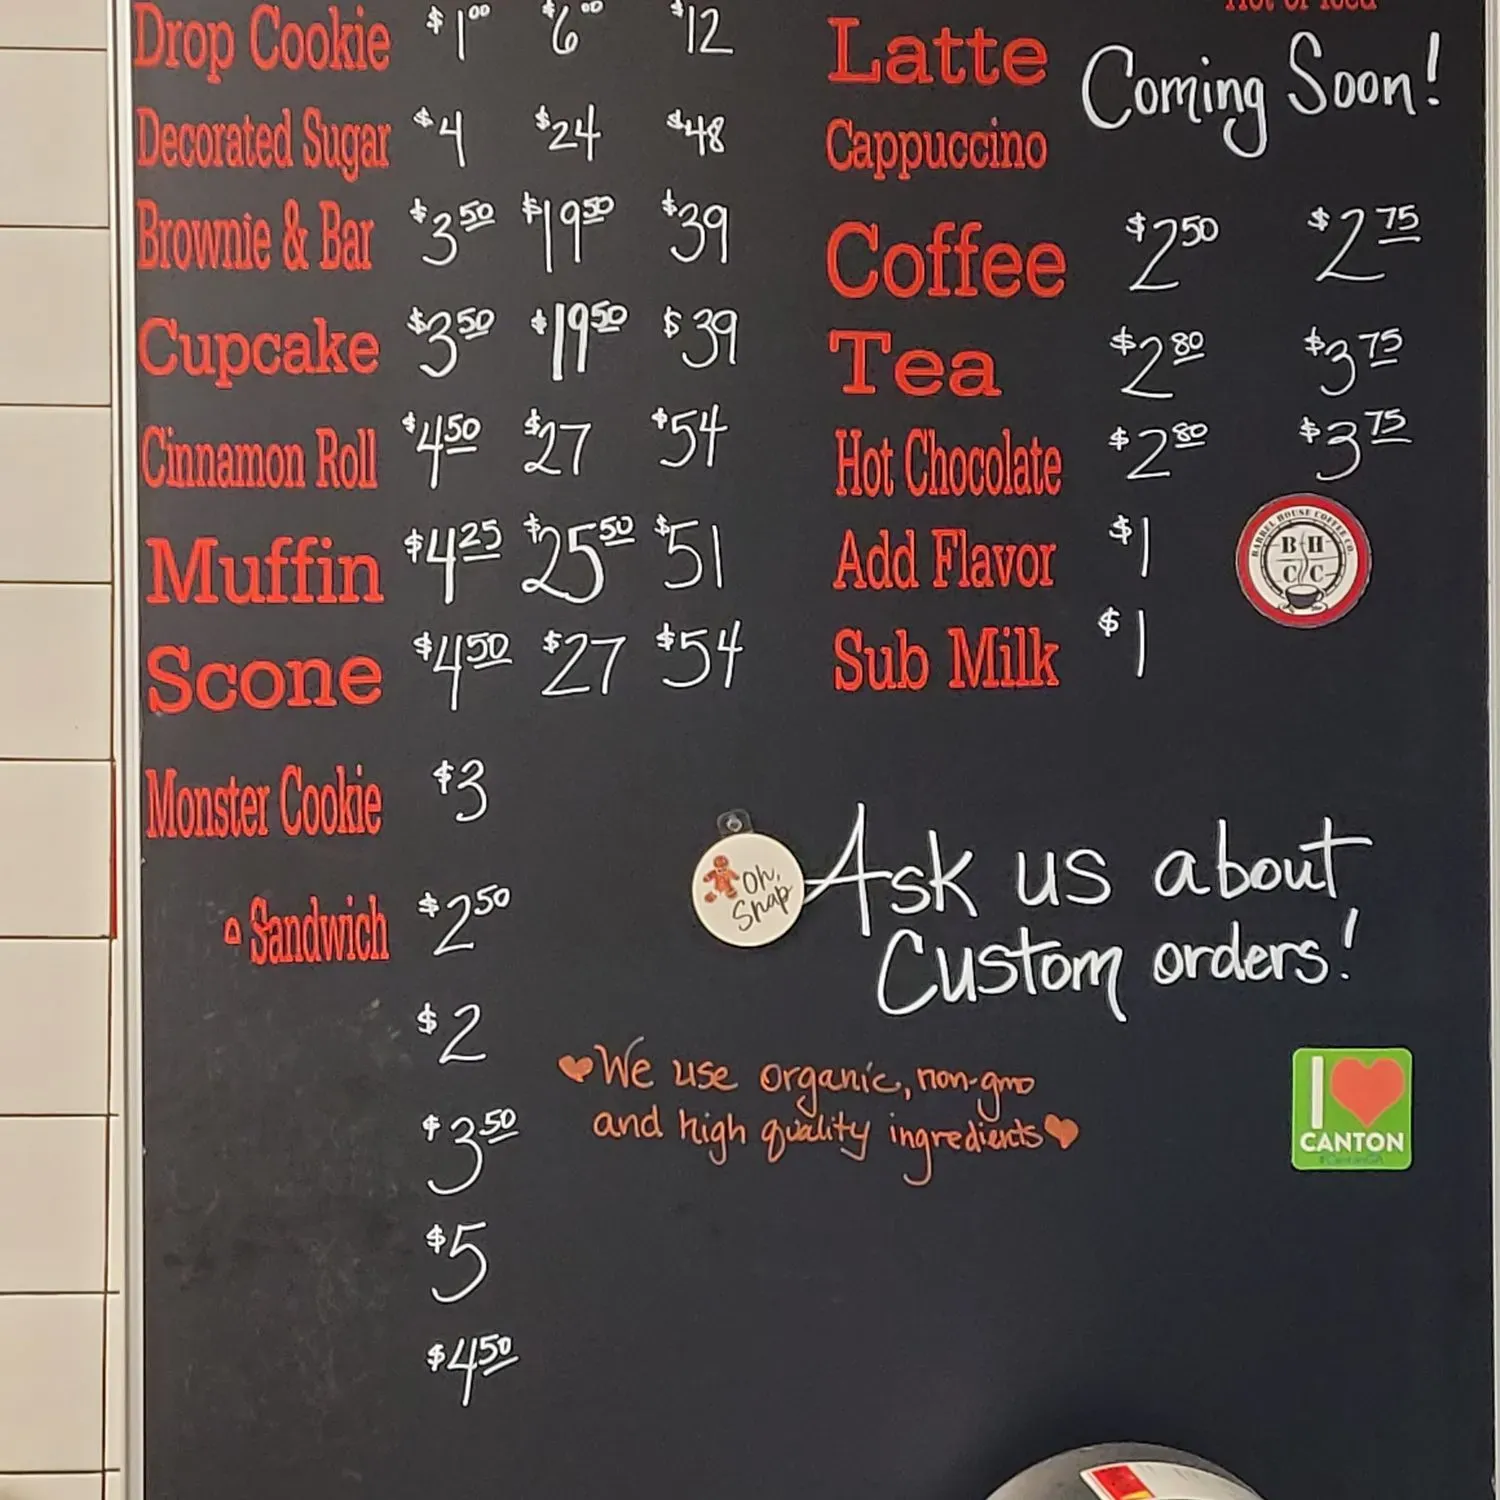 Drop Cookie $1.00 $6.00 $12
Decorated Sugar $4 $24 $48
Brownie & Bar $3.50 $19.50 $39
Cupcake $3.50 $19.50 $39
Cinnamon Roll $4.50 $27 $54
Muffin $4.25 $25.50 $51
Scone $4.50 $27 $54
Monster Cookie $3
Sandwich $2.50
$2
$3.50
$5
$4.50
Hot or Iced
Latte
Coming Soon!
Cappuccino
Coffee $2.50 $2.75
Tea $2.80 $3.75
Hot Chocolate $2.80 $3.75
Add Flavor $1
Sub Milk $1
BARREL HOUSE COFFEE CO.
B H
C C
Oh,
Snap
Ask us about
Custom orders!
We use organic, non-gmo
and high quality ingredients
I
CANTON